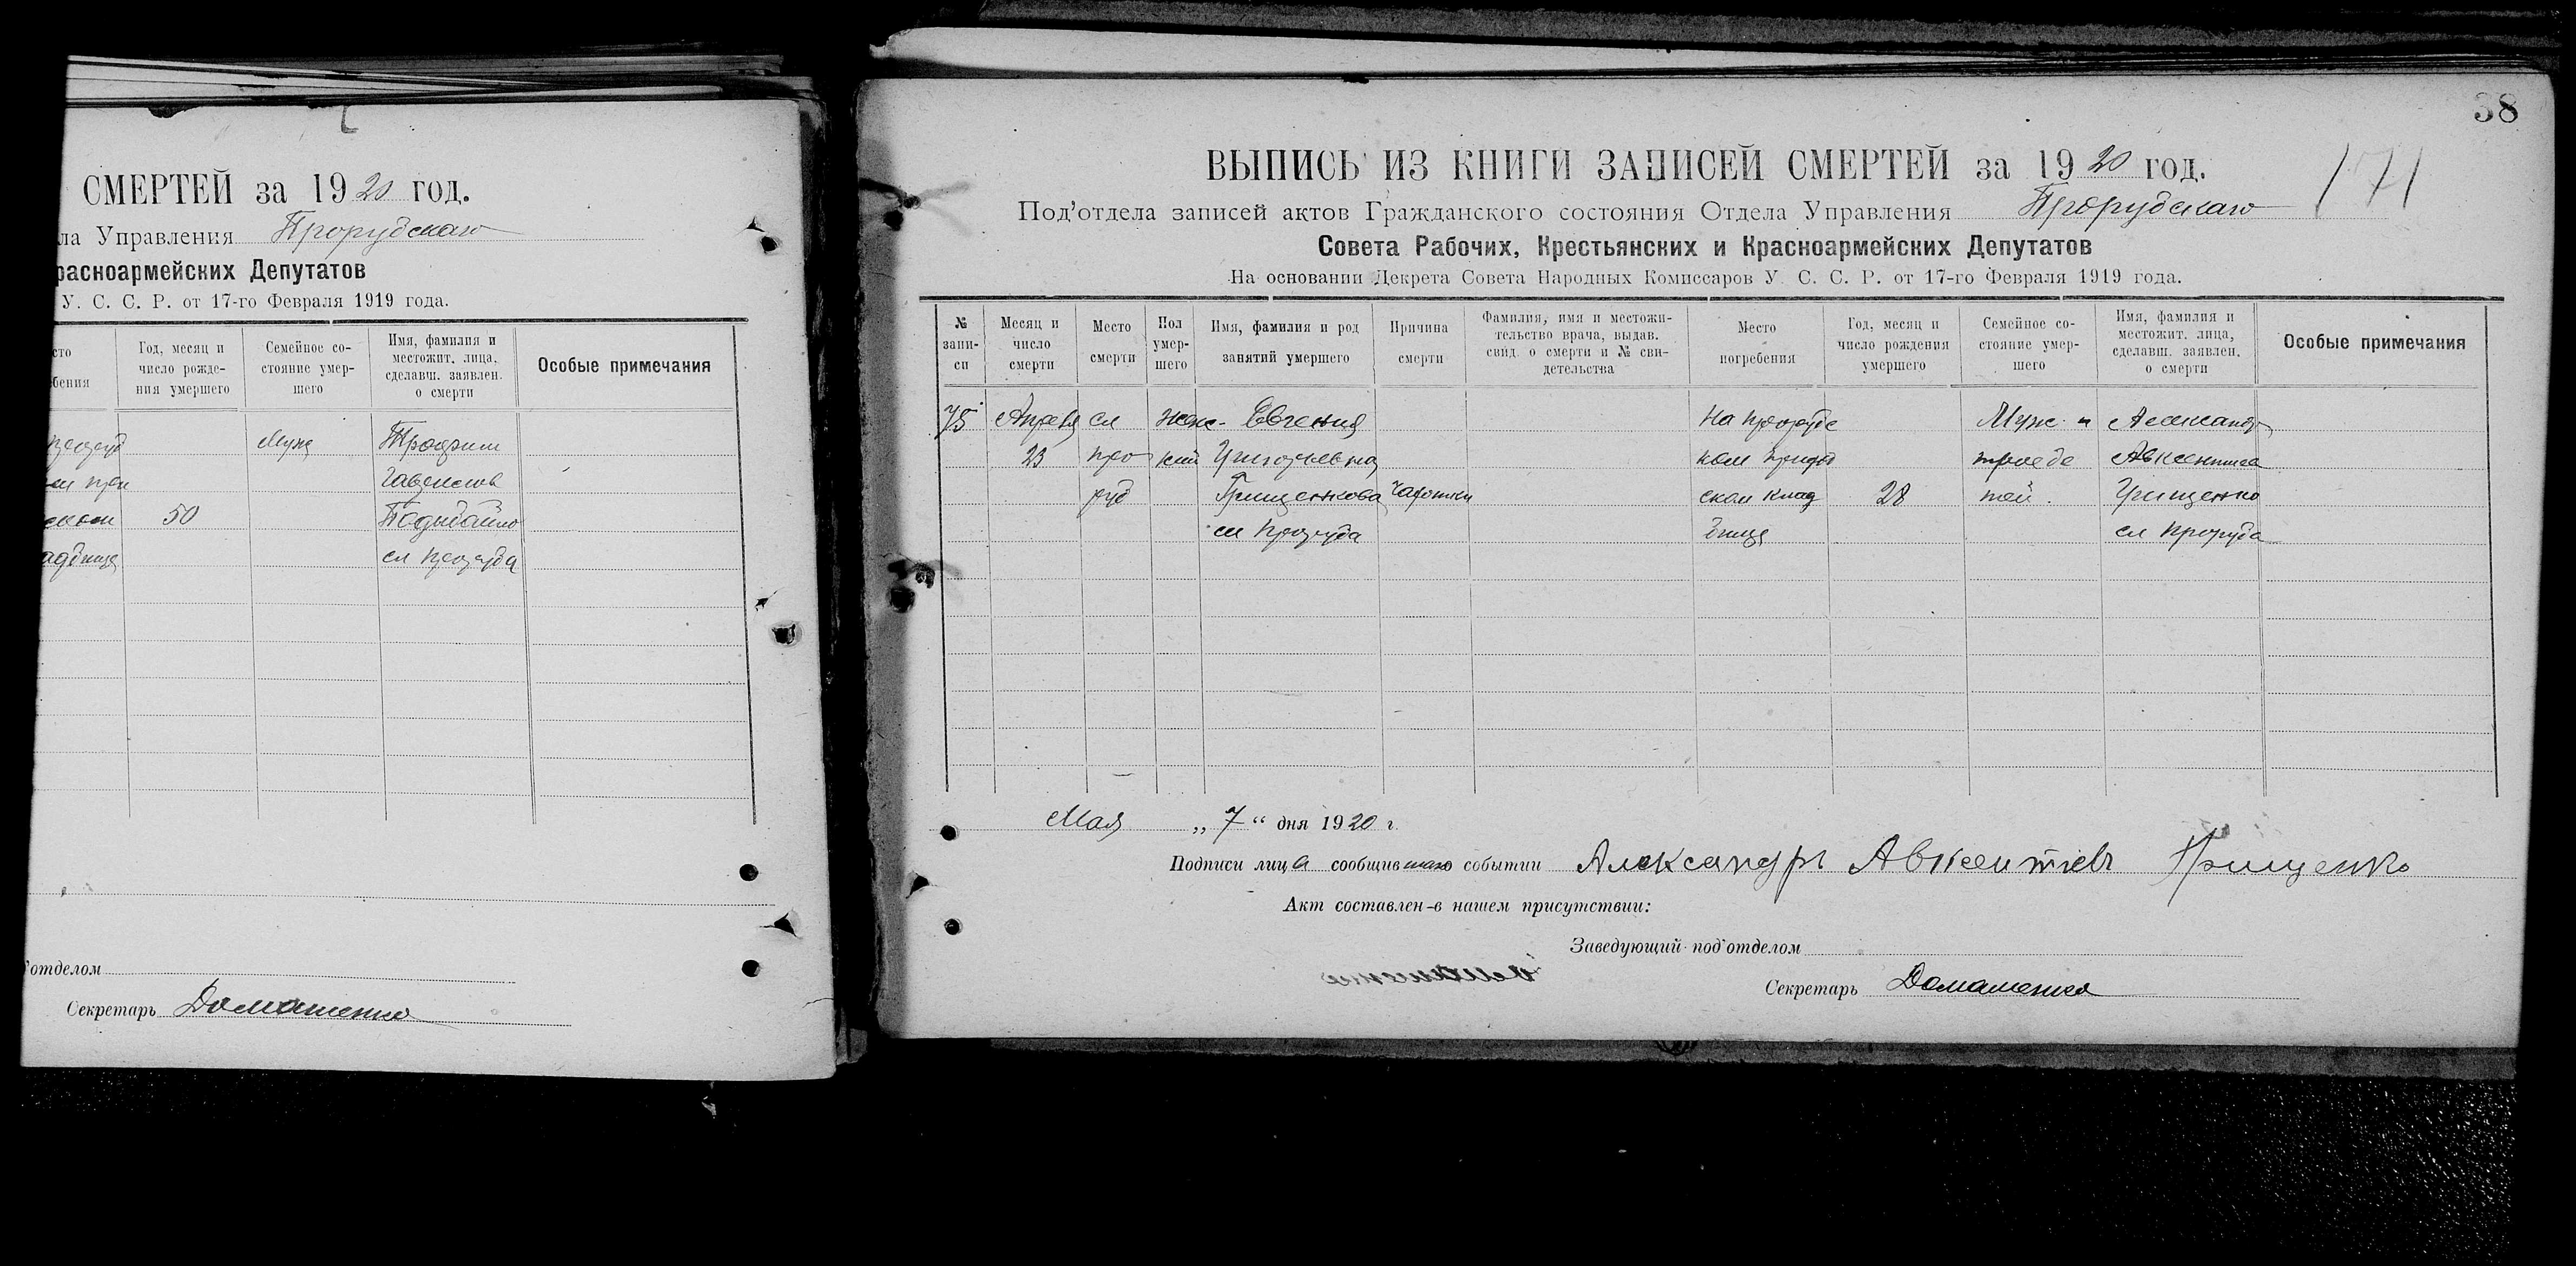 СМЕРТЕЙ за 1920 год.
ла Управления Прорубскаго
расноармейских Депутатов
У. С. С. Р. от 17-го Февраля 1919 года.
сто
бения
Год, месяц и
число рожде-
ния умершего
Семейное со-
стояние умер-
шего
Имя, фамилия и
местожит. лица,
сделавш. заявлен.
о смерти
Особые примечания
Муж Трофим
50
сл Проруба
'отделом
Секретарь Домашенко
38
171
ВЫПИСЬ ИЗ КНИГИ ЗАПИСЕЙ СМЕРТЕЙ за 1920 год.
Под'отдела записей актов Гражданского состояния Отдела Управления Прорубскаго
Совета Рабочих, Крестьянских и Красноармейских Депутатов
На основании Декрета Совета Народных Комиссаров У. С. С. Р. от 17-го Февраля 1919 года.
№
запи-
си
Месяц и
число
смерти
Место
смерти
Пол
умер-
шего
Имя, фамилия и род
занятий умершего
Причина
смерти
Фамилия, имя и местожи-
тельство врача, выдав.
свид. о смерти и № сви-
детельства
Место
погребения
Год, месяц и
число рождения
умершего
Семейное со-
стояние умер-
шего
Имя, фамилия и
местожит. лица,
сделавш. заявлен.
о смерти
Особые примечания
75 Апреля сл женс- Евгения На прорубс Муж. и Александр
23 про кий Григорьевна ком трое де
руб Грищенкова Чахотки ском клад 28 тей. Грищенко
сл Проруба бище сл Проруба
Мая „7“ дня 1920 г.
Подписи лица сообщившаго событии Александръ Авксентiевъ Грищенко
Акт составлен-в нашем присутствии:
Заведующий под'отделом
Секретарь Домашенко